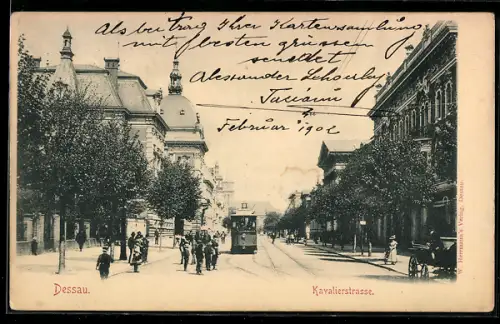 Als beitrag Ihrer Kartensammlung
mit besten grüssen
sendet
Alessander
Februar 1902
Dessau.
Kavalierstrasse.
Verlag, Dessau.